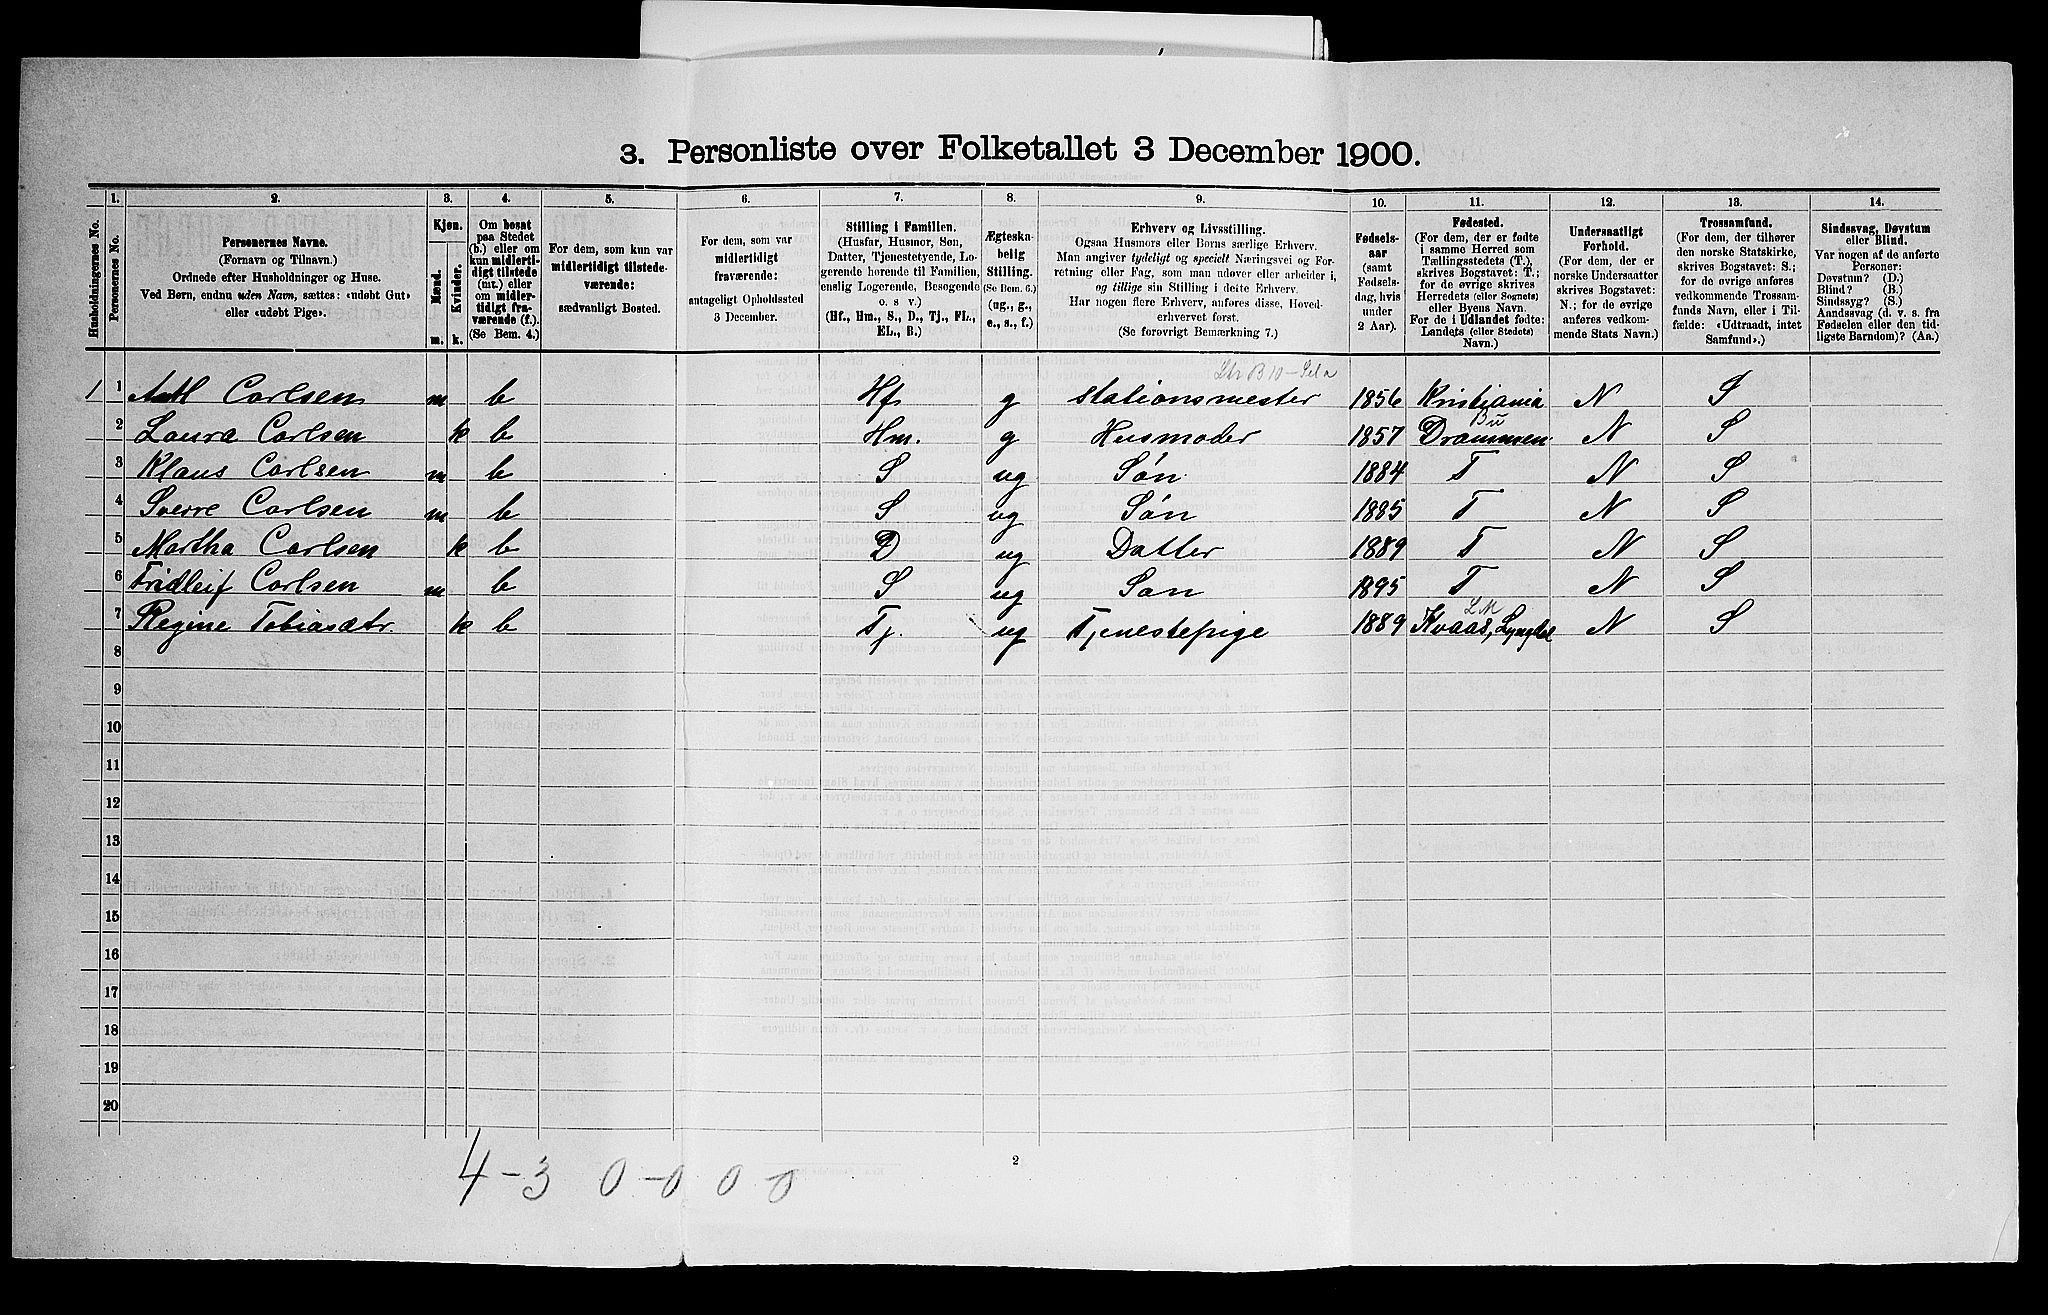 3. Personliste over Folketallet 3 December 1900.
1. 2. 3. 4. 5. 6. 7. 8. 9. 10. 11. 12. 13. 14.
Husholdningernes No.
Personernes No.
Personernes Navne.
(Fornavn og Tilnavn.)
Ordnede efter Husholdninger og Huse.
Ved Børn, endnu uden Navn, sættes: «udøbt Gut»
eller «udøbt Pige».
Kjøn.
Mænd.
Kvinder.
m. k.
Om bosat
paa Stedet
(b.) eller om
kun midlerti-
digt tilstede
(mt.) eller
om midler-
tidigt fra-
værende (f.).
(Se Bem. 4.)
For dem, som kun var
midlertidigt tilstede-
værende:
sædvanligt Bosted.
For dem, som var
midlertidigt
fraværende:
antageligt Opholdssted
3 December.
Stilling i Familien.
(Husfar, Husmor, Søn,
Datter, Tjenestetyende, Lo-
gerende hørende til Familien,
enslig Logerende, Besøgende
o. s v.)
(Hf., Hm., S., D., Tj., FL.,
EL., B.)
Ægteska-
belig
Stilling.
(Se Bem. 6.)
(ug., g.,
e., s., f.)
Erhverv og Livsstilling.
Ogsaa Husmors eller Børns særlige Erhverv.
Man angiver tydeligt og specielt Næringsvei og For-
retning eller Fag, som man udøver eller arbeider i,
og tillige sin Stilling i dette Erhverv.
Har nogen flere Erhverv, anføres disse, Hoved-
erhvervet først.
(Se forøvrigt Bemærkning 7.)
Fødsels-
aar
(samt
Fødsels-
dag, hvis
under
2 Aar).
Fødested.
(For dem, der er fødte
i samme Herred som
Tællingsstedets (T.),
skrives Bogstavet: T.;
for de øvrige skrives
Herredets (eller Sognets)
eller Byens Navn.
For de i Udlandet fødte:
Landets (eller Stedets)
Navn.)
Undersaatligt
Forhold.
(For dem, der er
norske Undersaatter
skrives Bogstavet:
N.; for de øvrige
anføres vedkom-
mende Stats Navn.)
Trossamfund.
(For dem, der tilhører
den norske Statskirke,
skrives Bogstavet: S.;
for de øvrige anføres
vedkommende Trossam-
funds Navn, eller i Til-
fælde: «Udtraadt, intet
Samfund».)
Sindssvag, Døvstum
eller Blind.
Var nogen af de anførte
Personer:
Døvstum? (D.)
Blind? (B.)
Sindssyg? (S.)
Aandssvag (d. v. s. fra
Fødselen eller den tid-
ligste Barndom)? (Aa.)
1 1 Carlsen m b Hf g Stationsmester 1856 Kristiania N S
Bu
2 Laura Carlsen k b Hm. g Husmoder 1857 Drammen N S
3 Klaus Carlsen m b S ug Søn 1884 T N S
4 Sverre Carlsen m b S ug Søn 1885 T N S
5 Martha Carlsen k b D ug Datter 1889 T N S
6 Fridleif Carlsen m b S ug Søn 1895 T N S
LM
7 Regine Tobiasdtr. k b Tj. ug Tjenestepige 1889 Kvaas, Lyngdal N S
8
9
10
11
12
13
14
15
16
17
18
19
20
2
4 - 3 0 - 0 0 - 0